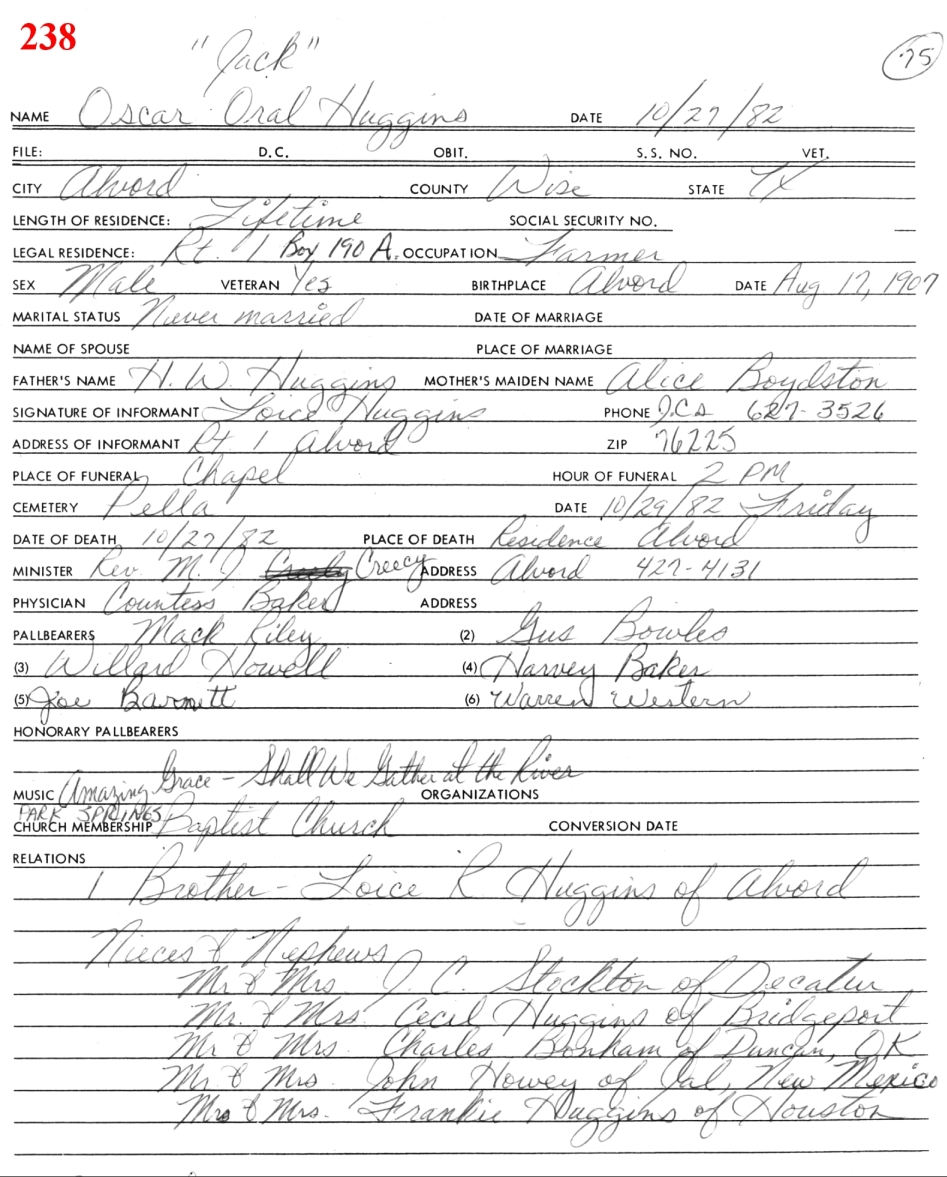 238
"Jack"
75
NAME Oscar Oral Huggins DATE 10/27/82
FILE: D.C. OBIT. S.S. NO. VET.
CITY Alvord COUNTY Wise STATE TX
LENGTH OF RESIDENCE: Lifetime SOCIAL SECURITY NO.
LEGAL RESIDENCE: Rt. 1 Box 190 A. OCCUPATION Farmer
SEX Male VETERAN Yes BIRTHPLACE Alvord DATE Aug 17, 1907
MARITAL STATUS Never married DATE OF MARRIAGE
NAME OF SPOUSE PLACE OF MARRIAGE
FATHER'S NAME H. W. Huggins MOTHER'S MAIDEN NAME Alice Boydston
SIGNATURE OF INFORMANT Loice Huggins PHONE 627-3526
ADDRESS OF INFORMANT Rt 1 Alvord ZIP 76225
PLACE OF FUNERAL Chapel HOUR OF FUNERAL 2 PM
CEMETERY Pella DATE 10/29/82 Friday
DATE OF DEATH 10/27/82 PLACE OF DEATH Residence Alvord
MINISTER Rev. M. J. Creecy ADDRESS Alvord 427-4131
PHYSICIAN Countess Baker ADDRESS
PALLBEARERS Mack Riley (2) Gus Bowles
(3) Willard Howell (4) Harvey Baker
(5) Joe Barnett (6) Warren Western
HONORARY PALLBEARERS
MUSIC Amazing Grace - Shall We Gather at the River ORGANIZATIONS
PARK SPRINGS
CHURCH MEMBERSHIP Baptist Church CONVERSION DATE
RELATIONS
1 Brother - Loice R Huggins of Alvord
Nieces & Nephews
Mr & Mrs. J. C. Stockton of Decatur
Mr. & Mrs. Cecil Huggins of Bridgeport
Mr & Mrs. Charles Bonham of Duncan, OK
Mr & Mrs John Howey of Jal, New Mexico
Mrs & Mrs. Frankie Huggins of Houston